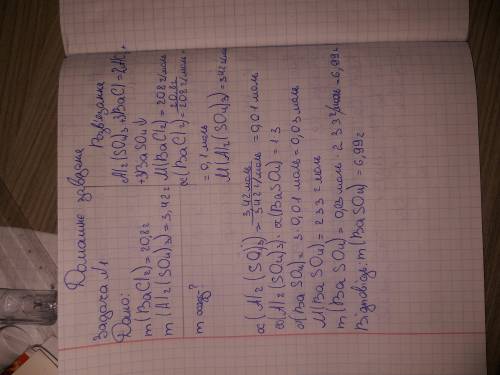 Домашнє завдання
Задача №1
Дано:
m(BaCl2)=20,8г
m(Al2(SO4)3)=3,42г
m осаду?
Розв'язання
Al2(SO4)3+3BaCl=2Al
+3BaSO4↓
M(BaCl2)=208г/моль
α(BaCl2)=20,8г/208г/моль=
=0,1моль
M(Al2(SO4)3)=342г/моль
α(Al2(SO4)3)=3,42моль/342г/моль=0,01моль
α(Al2(SO4)3):α(BaSO4)=1 3
α(BaSO4)=3·0,01моль=0,03моль
M(BaSO4)=233г моль
m(BaSO4)=0,03моль·233г/моль=6,99г
Відповідь: m(BaSO4)=6,99г